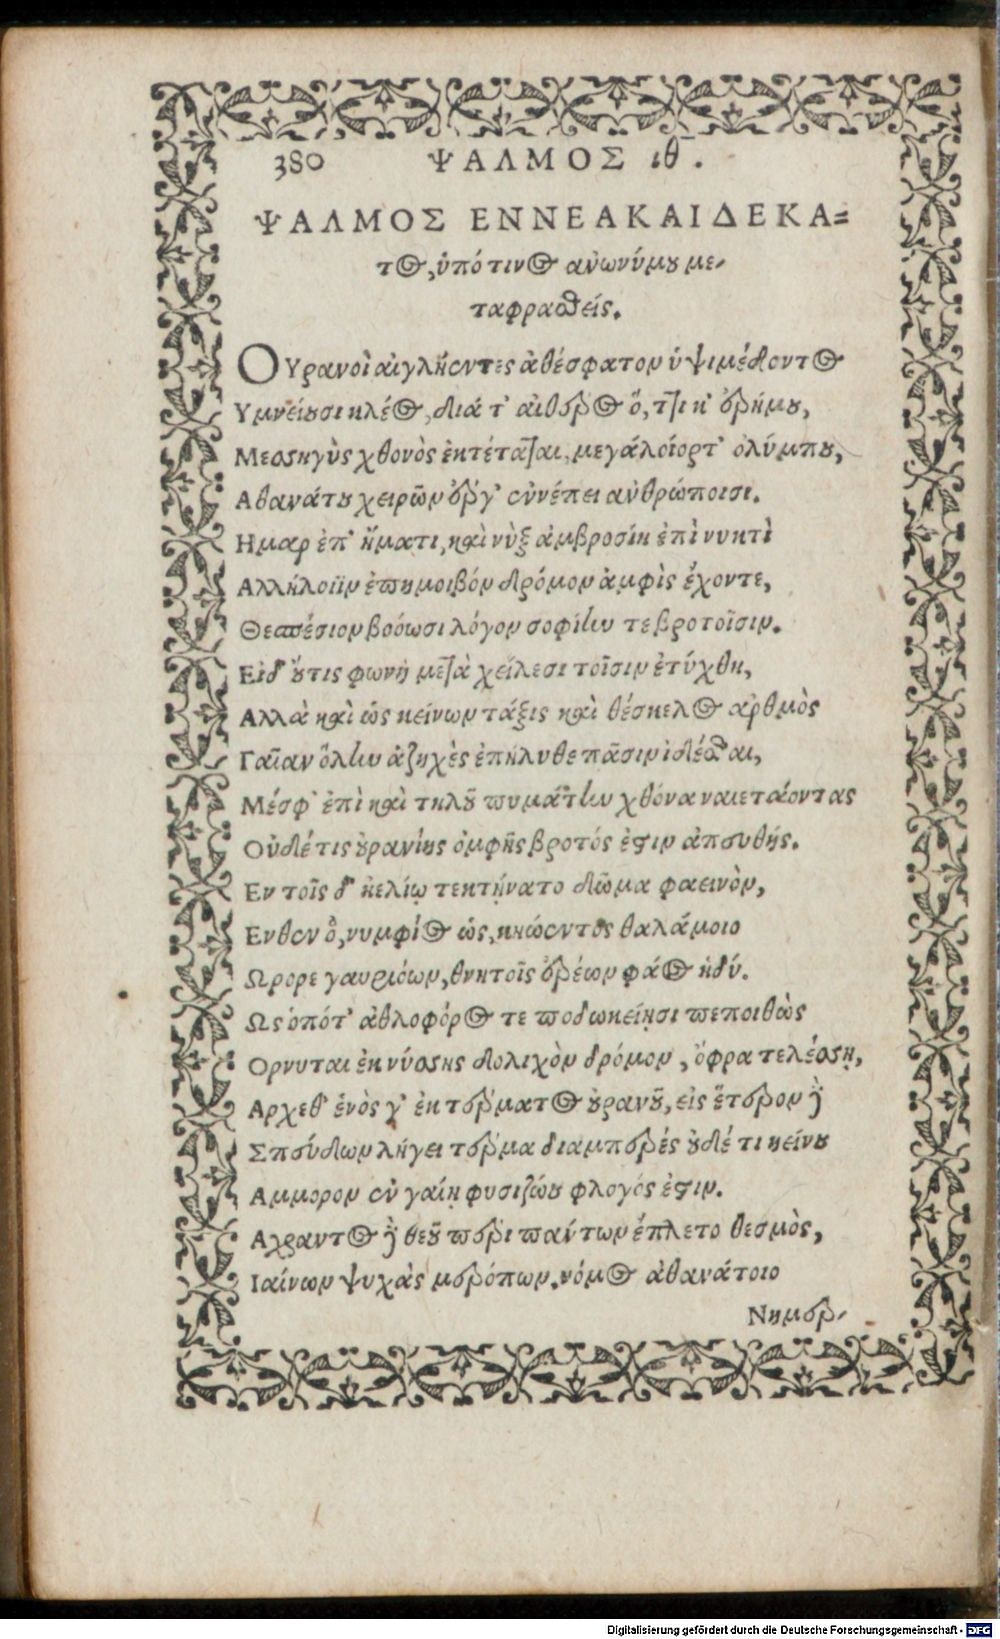 380 ΨΑΛΜΟΣ ιθ.
ΨΑΛΜΟΣ ΕΝΝΕΑΚΑΙΔΕΚΑ=
τος, ὑπό τινος ανωνύμου με-
ταφρασθείς.
ΟΥρανοὶ αἰγλήεντες ἀθέσφατον ὑψιμέδοντος
Υμνείουσι κλέος, διά τ' αἰθέρος ὅ, τι κ' ἔρήμου,
Μεσσηγὺς χθονὸς ἐκτέταται, μεγάλοιό τ' ὀλύμπου,
Αθανάτου χειρῶν ἔργ' ἐνέπει ανθρώποισι.
Ημαρ ἐπ' ἤματι, καὶ νὺξ ἀμβροσίη ἐπὶ νυκτὶ
Αλλήλοιϊν ἐπημοιβόν δρόμον ἀμφὶς ἔχοντε,
Θεσπέσιον βοόωσι λόγον σοφίην τε βροτοῖσιν.
Εἰδ' οὔτις φωνὴ μετὰ χείλεσι τοῖσιν ἐτύχθη,
Αλλὰ καὶ ὡς κείνων τάξις καὶ θέσκελος αρθμὸς
Γαῖαν ὅλην ἀζηχὲς ἐπήλυθε πᾶσιν ἰδέσθαι,
Μέσφ' ἐπὶ καὶ τηλοῦ πυμάτην χθόνα ναιετάοντας
Οὐδέ τις οὐρανίης ὀμφῆς βροτός ἐστιν ἀπευθής.
Εν τοῖς δ' ἠελίῳ τεκτήνατο δῶμα φαεινὸν,
Ενθεν ὅ, νυμφίος ὡς, κηώεντος θαλάμοιο
Ωρορε γαυριόων, θνητοῖς ἐρέων φάος ἡδύ.
Ως ὁπότ' ἀθλοφόρος τε ποδωκείῃσι πεποιθὼς
Ορνυται ἐκ νύσσης δολιχὸν δρόμον, ὄφρα τελέσσῃ,
Αρχεθ' ἑνὸς γ' ἐκ τέρματος οὐρανοῦ, εἰς ἕτερον δὲ
Σπεύδων λήγει τέρμα διαμπερές οὐδέ τι κείνου
Αμμορον ἐν γαίῃ φυσιζώου φλογός ἐστιν.
Αχραντος δὲ θεοῦ περι παντων ἔπλετο θεσμὸς,
Ιαίνων ψυχὰς μερόπων. νόμος ἀθανάτοιο
Νημερ-
Digitalisierung gefördert durch die Deutsche Forschungsgemeinschaft - DFG